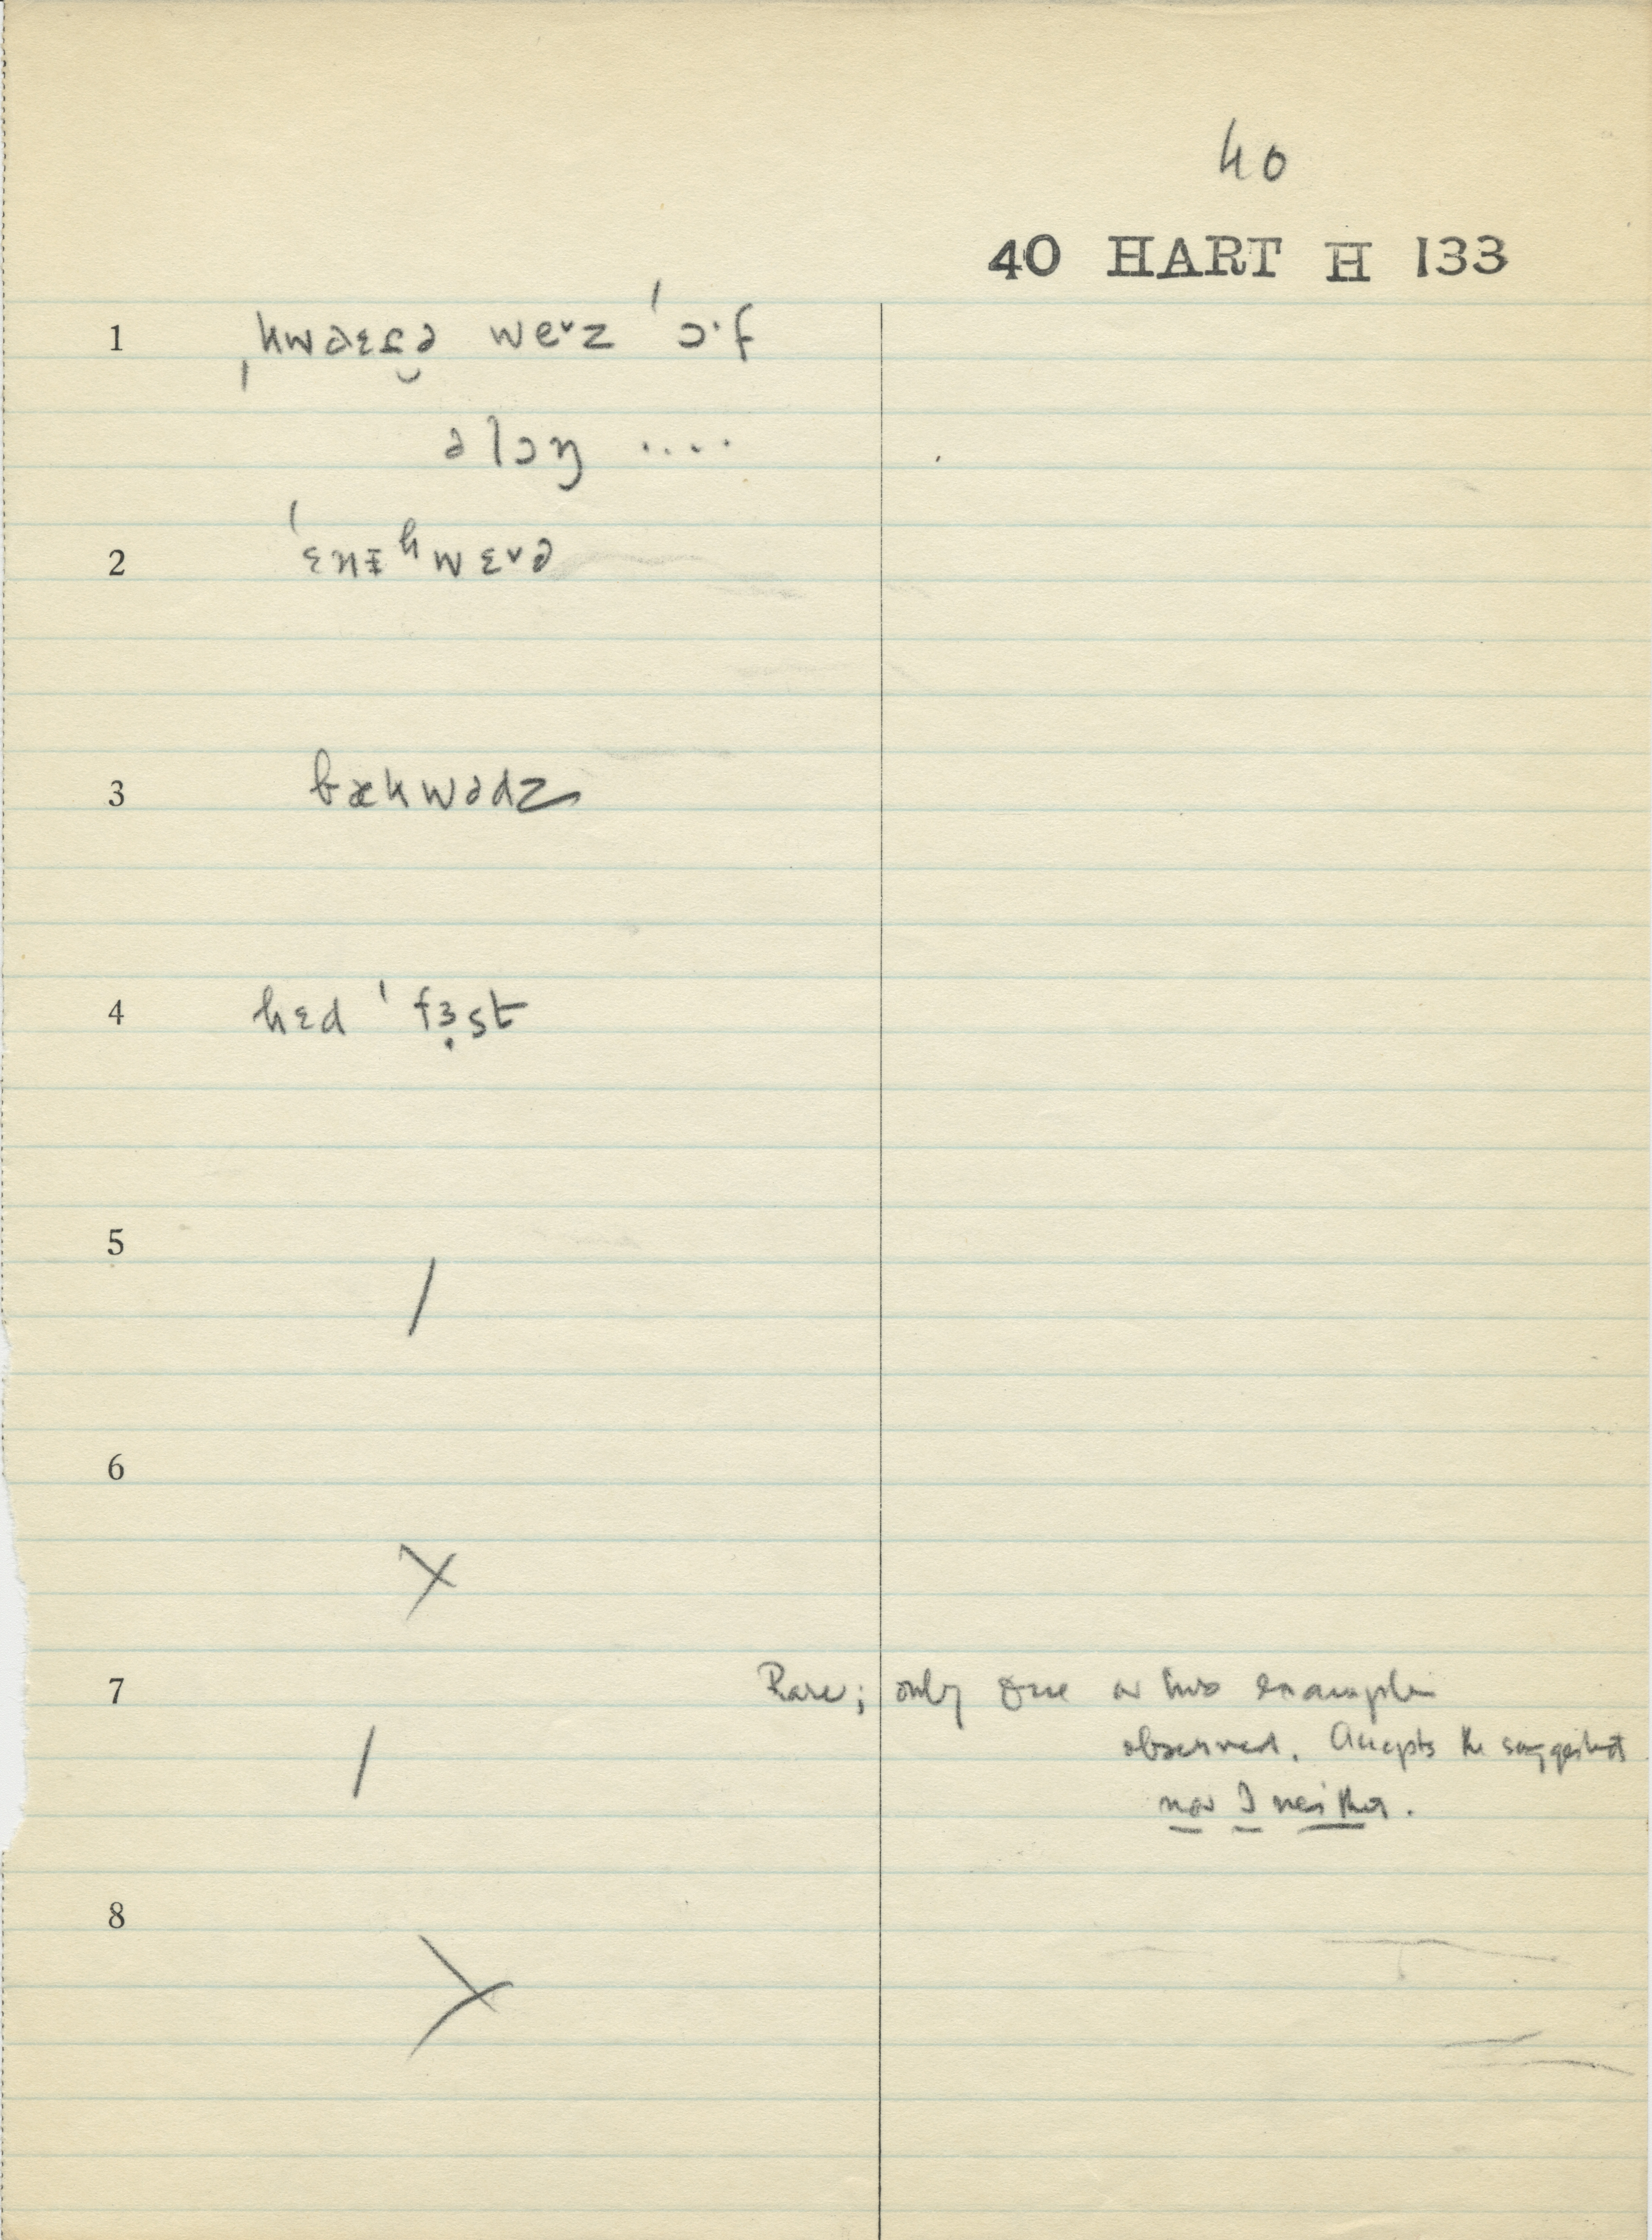 40
40 HART H 133
1 ˌkwaɛɾə weˇz ˈɔ·f
əlɔŋ ....
2 ˈɛnɪ̵ʰwɛˇə
3 bækwədz
4 hɛd ˈfɜ̣st
5 /
6 X
7 Rare; only one or two examples
observed. Accepts the suggested
/ nor I neither.
8 X